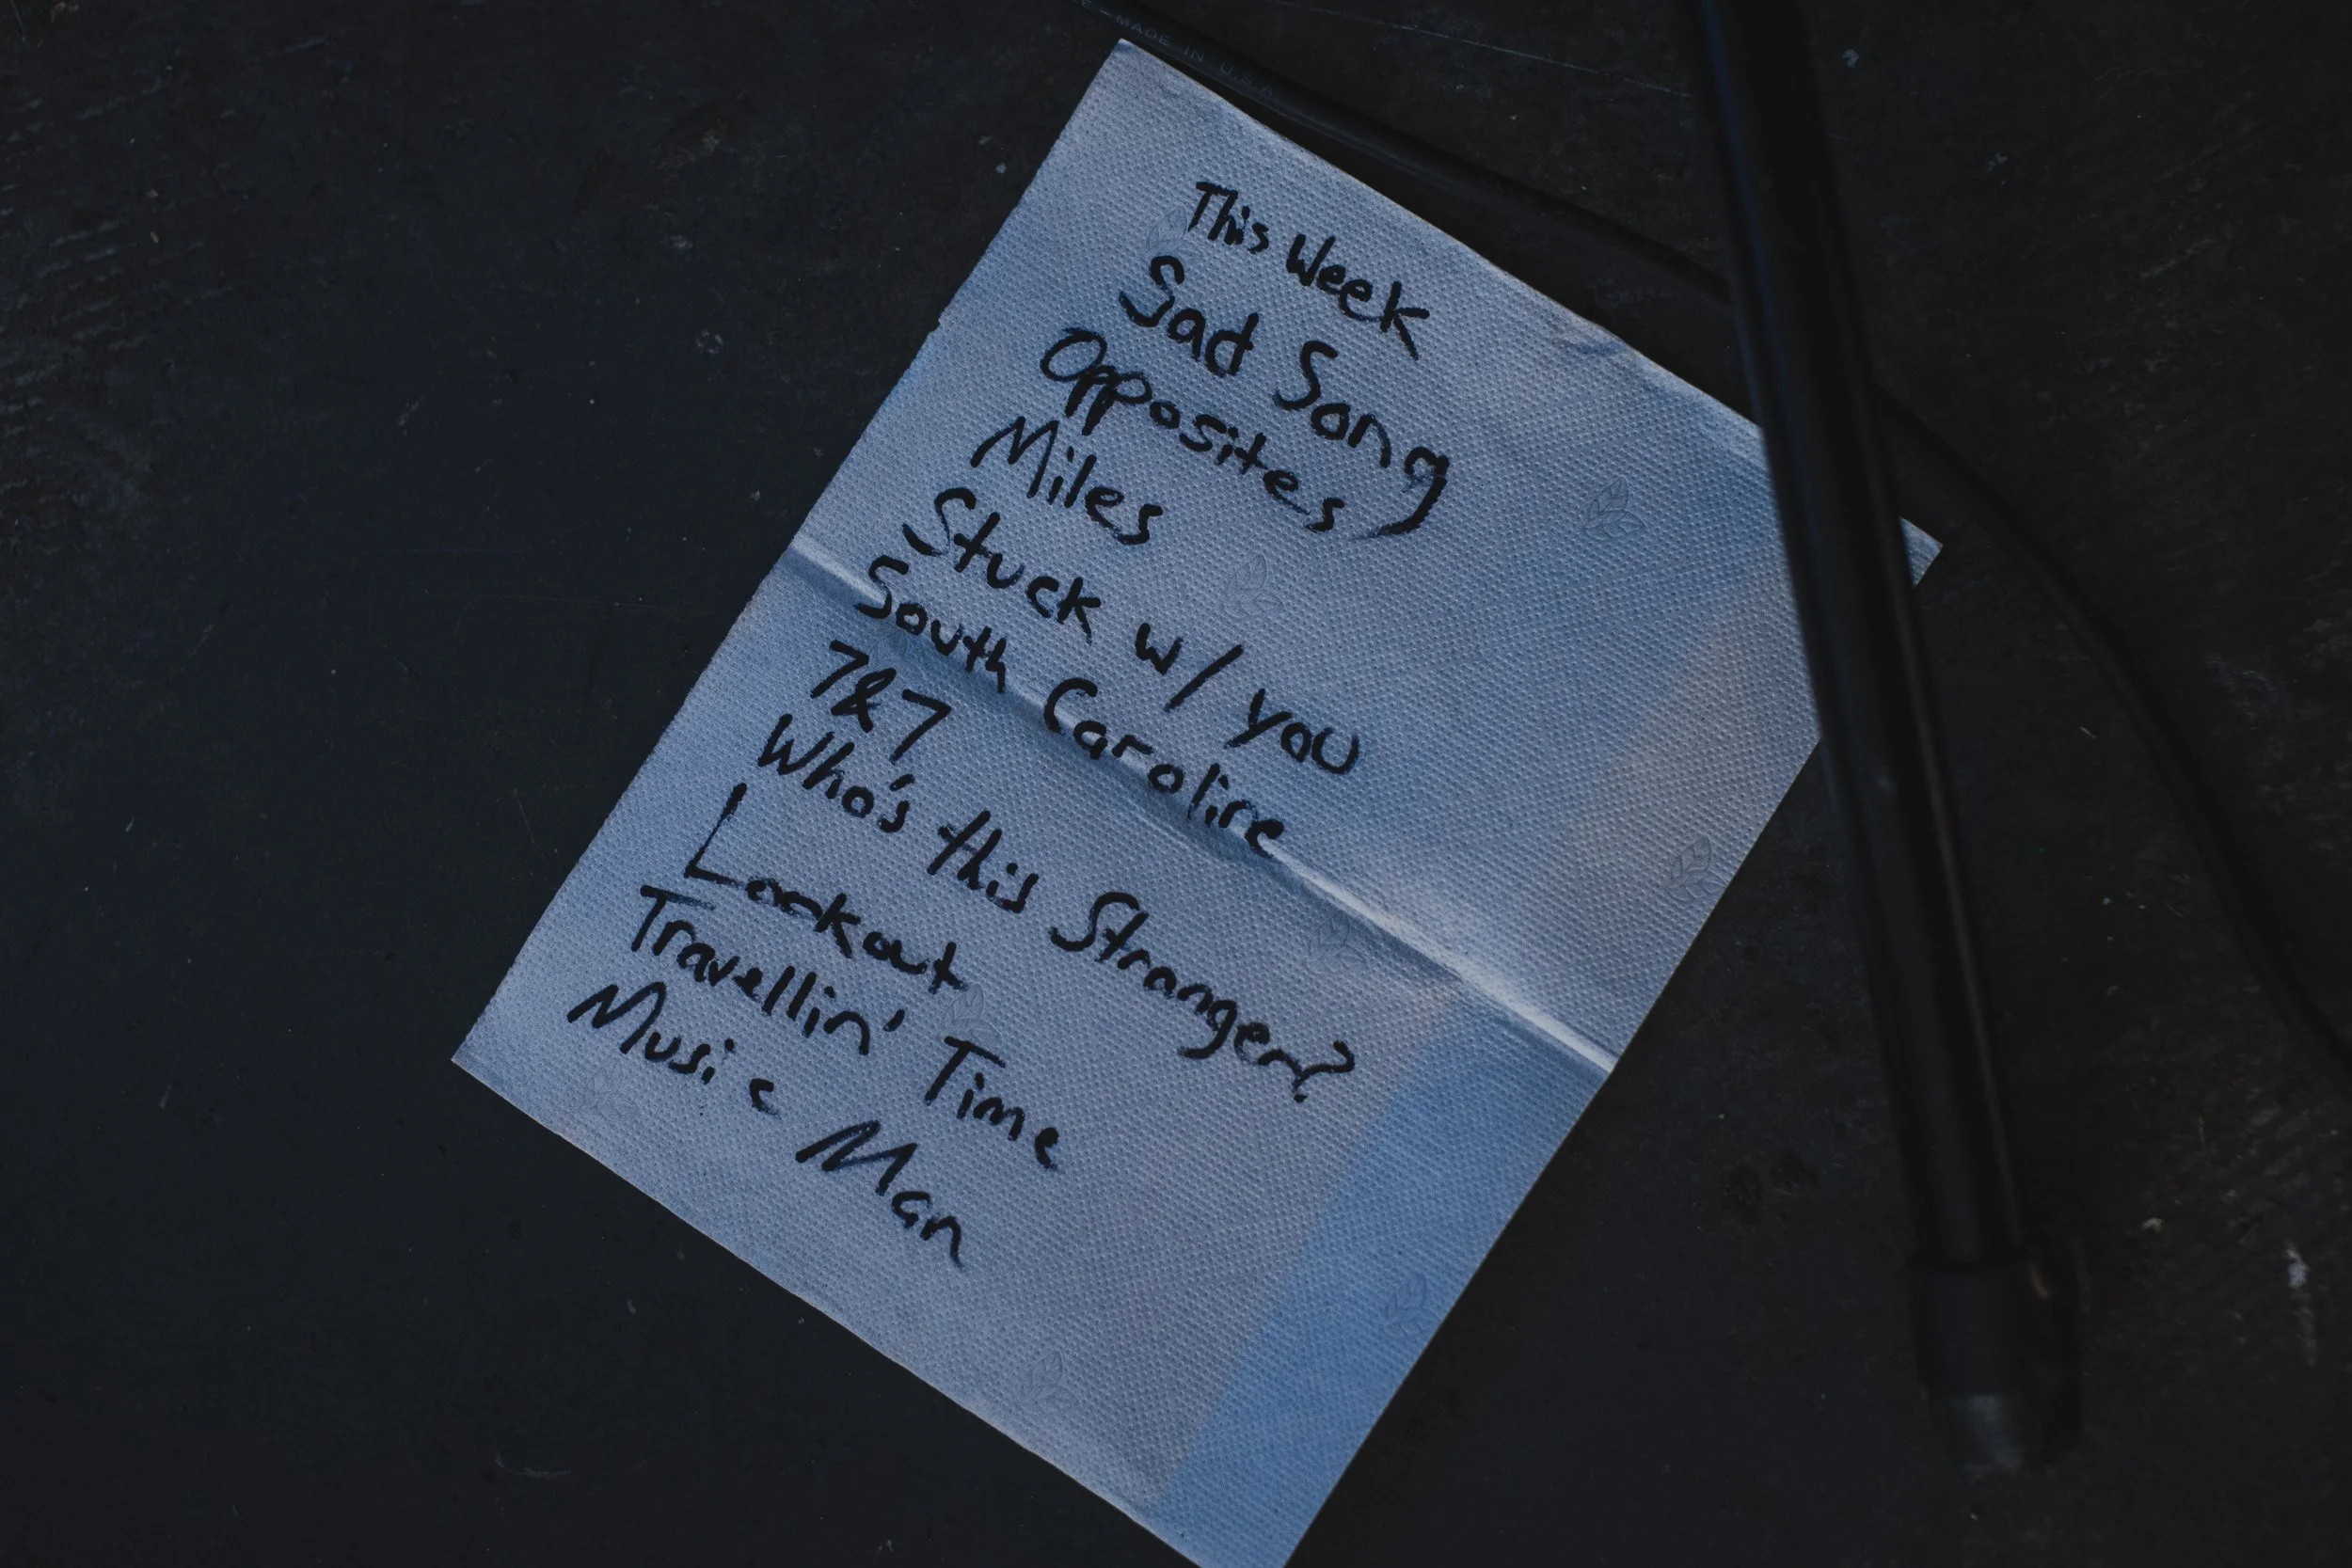 MADE IN U.S.A
This Week
Sad Song
Opposites
Miles
Stuck w/ you
South Caroline
7&7
Who's this Stranger?
Lookout
Travellin' Time
Music Man